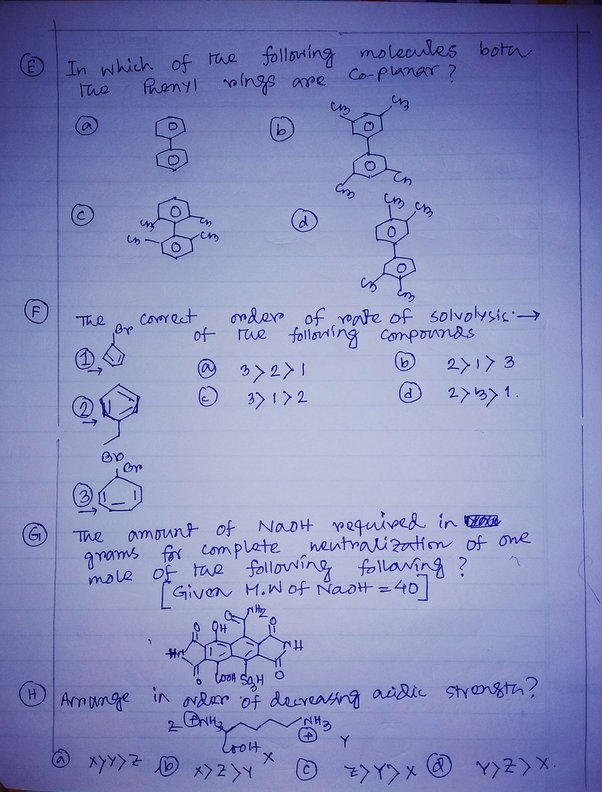 (E) In which of the following molecules both
the Phenyl rings are co-planar ?
(a) (b) CH3 CH3
CH3 CH3
(c) CH3 CH3 (d) CH3 CH3
CH3 CH3
CH3 CH3
(F) The correct order of rate of solvolysis →
of the following compounds
Br
(1) (a) 3>2>1 (b) 2>1>3
(2) (c) 3>1>2 (d) 2>3>1.
Br
Br
(3)
(G) The amount of NaOH required in
grams for complete neutralization of one
mole of the following following ?
[Given M.W of NaOH = 40]
O NH2
O OH O
HN NH
O COOH SO3H O
(H) Arrange in order of decreasing acidic strength?
Z (+)NH3 NH3
(+) Y
COOH X
(a) X>Y>Z (b) X>Z>Y (c) Z>Y>X (d) Y>Z>X.